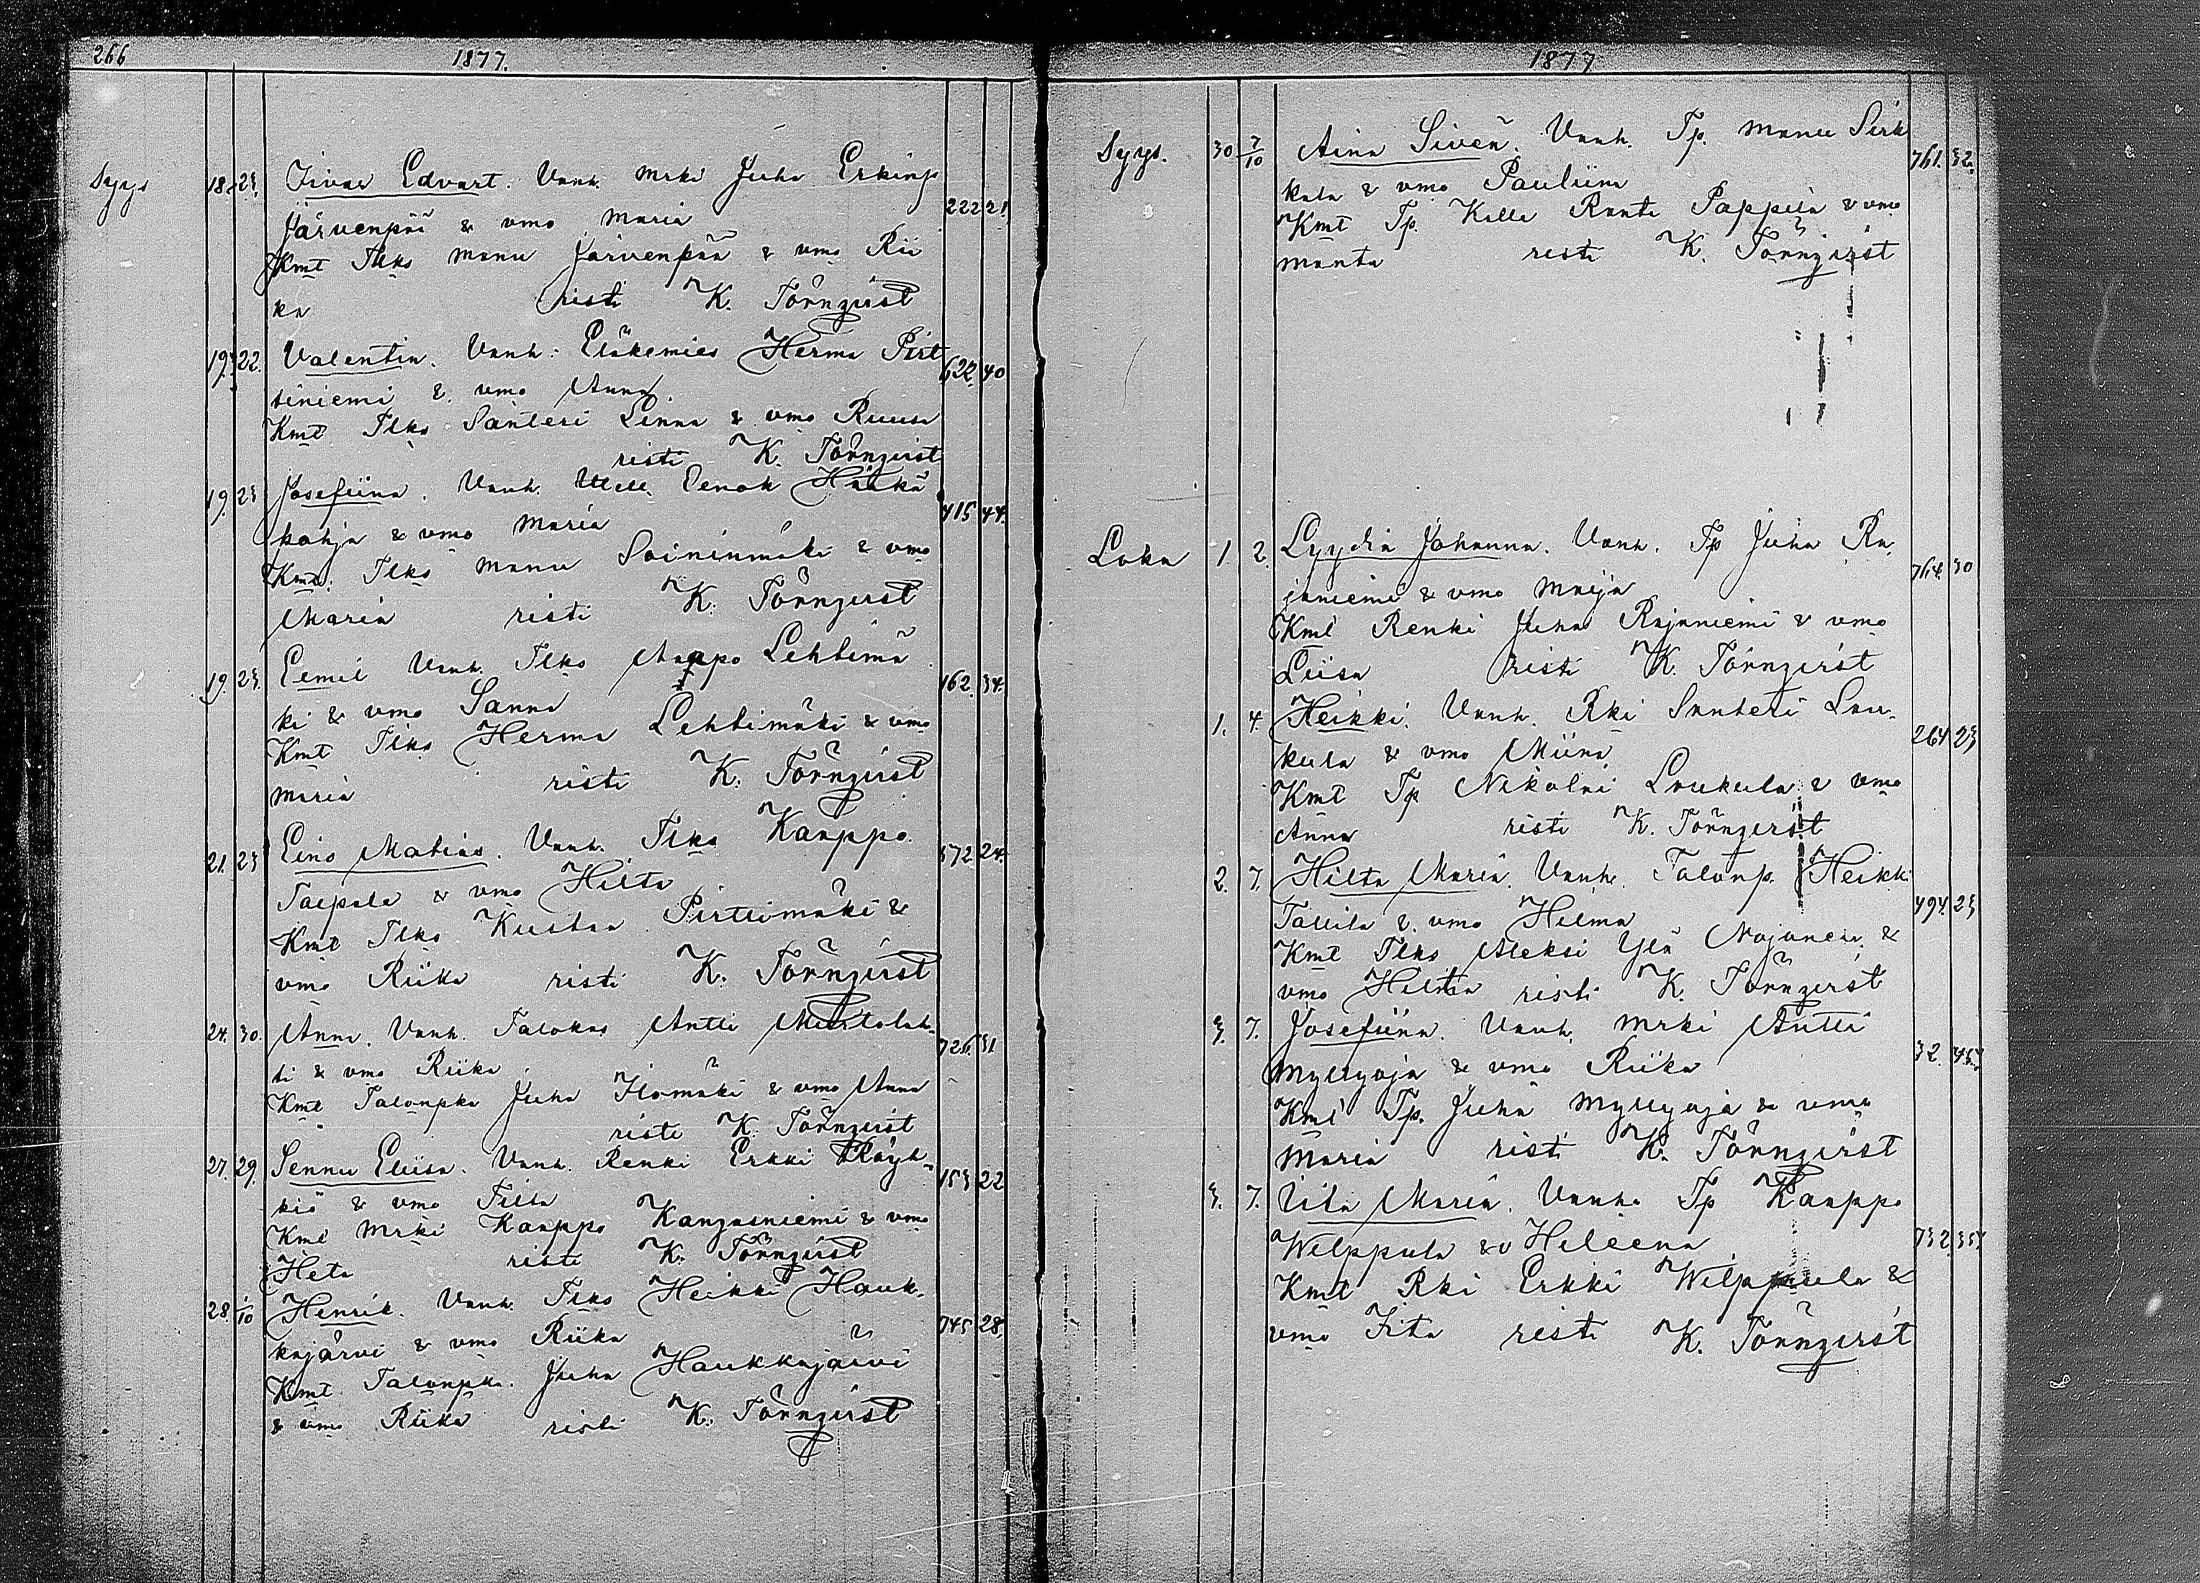 266 1877.
Syys 18. 23. Iivar Edvart. Vanh. Mrki Juha Erkinp
Järvenpää & vmo Maria 222 21.
Kmt Tlks Manu Järvenpää & vmo Rii
ka risti K. Törnqvist
19. 22. Valentin. Vanh. Eläkemies Herma Pirt
tiniemi & vmo Anna 622. 40
Kmt Tlks Santeri Linna & vmo Ruusa
risti K. Törnqvist
19. 23 Josefiina. Vanh. Eenok Haaka
pohja & vmo Maria 415 44.
Kmt. Tlks Manu Soininmäki & vmo
Maria risti K. Törnqvist
19. 23. Eemil Vanh. Tlks Aappo Lehtimä
ki & vmo Sanna 162. 34.
Kmt Tlks Herma Lehtimäki & vmo
Maria risti K. Törnqvist
21. 23 Eino Matias. Vanh. Tlks Kaappo
Taipale & vmo Hilta 572 24.
Kmt Tlks Kustaa Pirttimäki &
vmo Riika risti K. Törnqvist
24. 30. Anna. Vanh. Talokas Antti Mustalah-
ti & vmo Riika 726. 31
Kmt Talonpka Juha Ilomäki & vmo Anna
risti K. Törnqvist
27. 29. Sennu Eliisa. Vanh. Renki Erkki Räyh-
kiö & vmo Tilta 153 22
Kmt Mrki Kaappo Kangasniemi & vmo
Heta risti K. Törnqvist
28. 1/10 Henrik. Vanh. Tlks Heikki Hauk-
kajärvi & vmo Riika 745 28.
Kmt. Talonpk. Juha Haukkajärvi
& vmo Riika risti K. Törnqvist
1877
Syys. 30 7/10 Aina Siveä. Vanh. Tp. Manu Sirk
kala & vmo Pauliina 761. 32.
Kmt Tp. Kalle Ranta Pappila & vmo
Manta risti K. Törnqvist
Loka 1. 2. Lyydia Johanna. Vanh. Tp Juha Ra
janiemi & vmo Maija 764. 30
Kmt Renki Juha Rajaniemi & vmo
Liisa risti K. Törnqvist
1. 4. Heikki. Vanh. Rki Santeri Lou-
kula & vmo Miina 264 23
Kmt Tp Nikolai Loukula & vmo
Anna risti K. Törnqvist
2. 7. Hilta Maria. Vanh. Talonp. Heikki
Tallila & vmo Hilma 494. 23
Kmt Tlks Aleksi Ylä Nojonen &
vmo Hilma risti K. Törnqvist
3. 7. Josefiina. Vanh. Mrki Antti
Myllyoja & vmo Riika 32. 43
Kmt Tp. Juha Myllyoja & vmo
Maria risti K. Törnqvist
3. 7. Iita Maria. Vanh. Tp Kaappo
Wilppula & v Heleena 732 35
Kmt Rki Erkki Wilppula &
vmo Iita risti K. Törnqvist